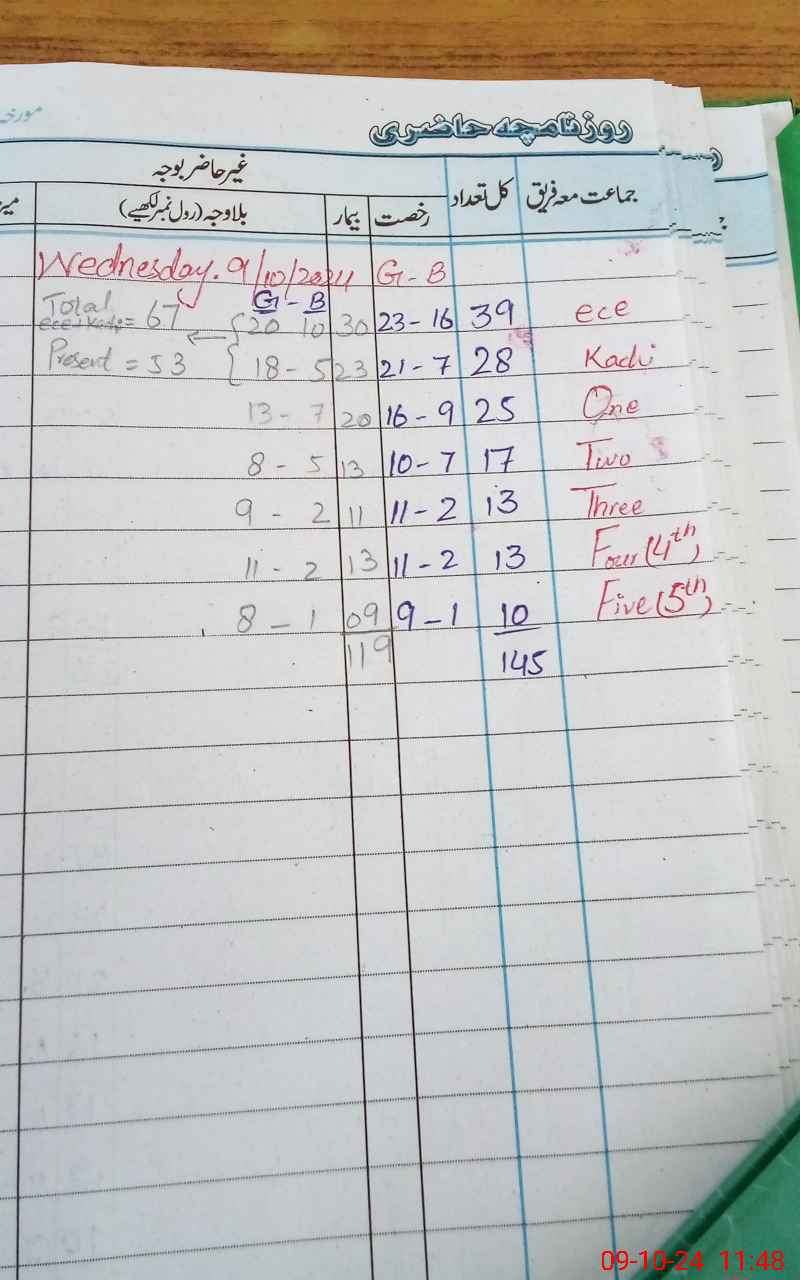 روزنامچہ حاضری
جماعت معہ فریق کل تعداد غیر حاضر بوجہ
رخصت بیمار بلاوجہ (رول نمبر لکھیے)
Wednesday. 9/10/2024 G - B
G - B
Total ece+Kachi = 67 20 10 30 23 - 16 39 ece
Present = 53 18 - 5 23 21 - 7 28 Kachi
13 - 7 20 16 - 9 25 One
8 - 5 13 10 - 7 17 Two
9 - 2 11 11 - 2 13 Three
11 - 2 13 11 - 2 13 Four (4th)
8 - 1 09 9 - 1 10 Five (5th)
119 145
09-10-24 11:48